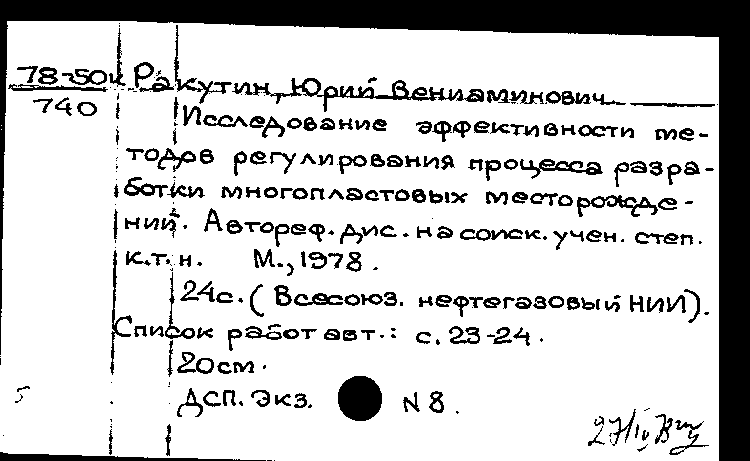 78-50к Ракутин, Юрий Вениаминович
740
Исследование эффективности ме-
тодов регулирования процесса разра-
ботки многопластовых месторожде-
ний. Автореф. дис. на соиск. учен. степ.
к.т.н. М., 1978.
24с. (Всесоюз. нефтегазовый НИИ).
Список работ авт.: с. 23-24.
20см.
ДСП. Экз. N 8.
5
27/IV